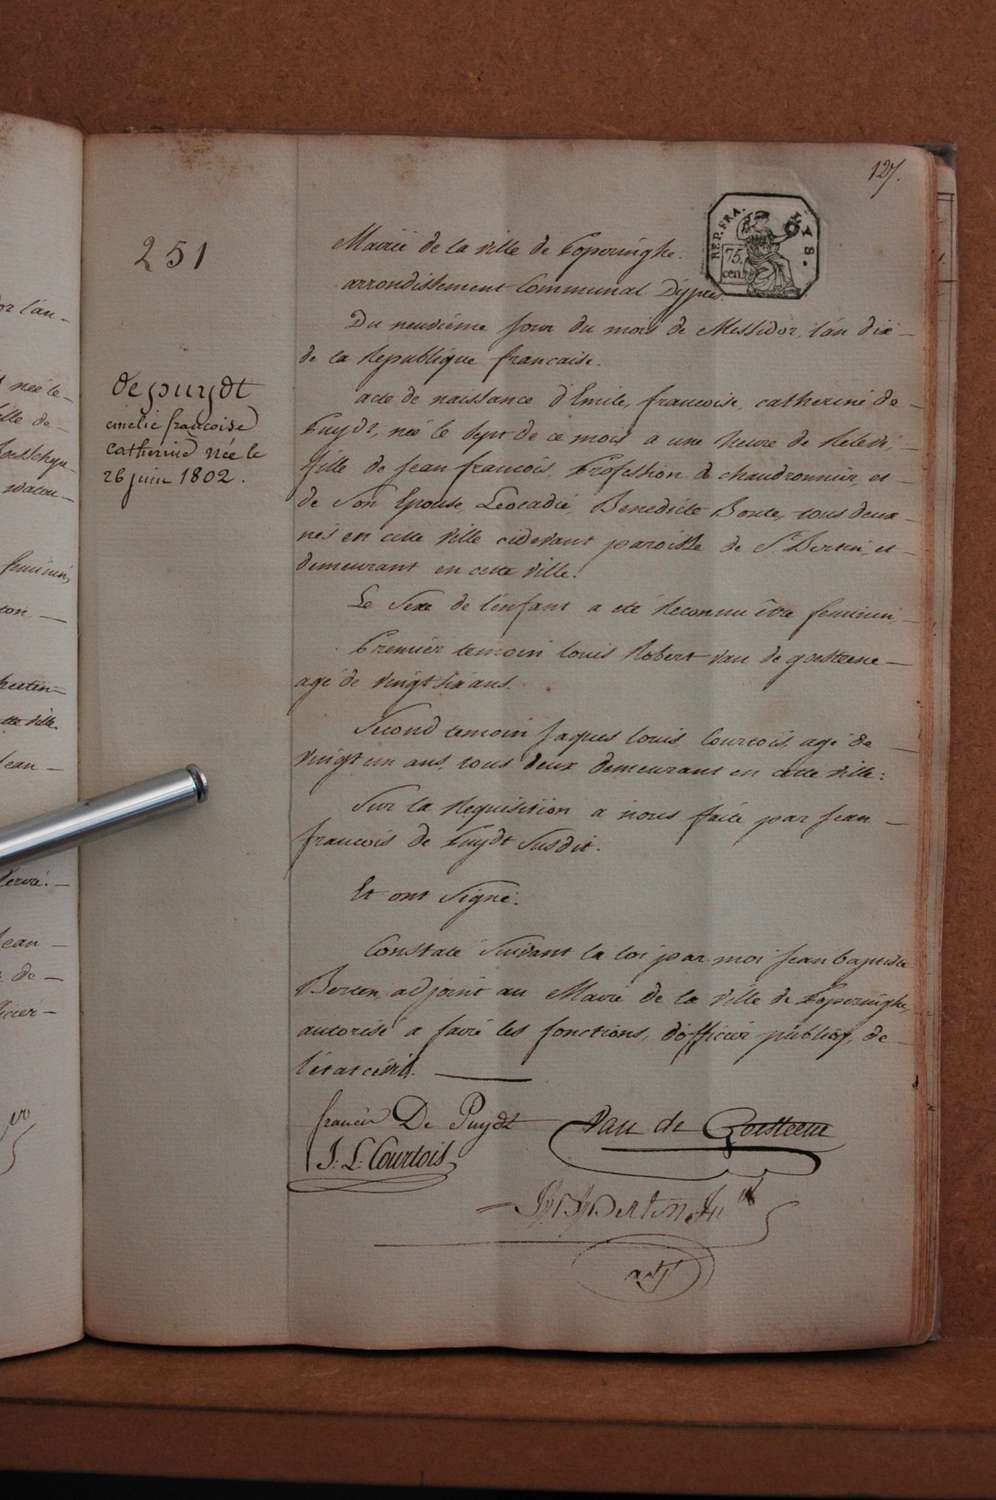 127.
REP. FRA.
LYS.
75.
cen.
251
Mairie de la ville de Poperinghe.
arrondissement Communal Dypres.
Du neuvième jour du mois de Messidor, l'an dix
de la Republique francaise.
acte de naissance d'Emile, francoise, catherine de
Puydt, née le sept de ce mois a une heure de Relevé,
fille de jean francois, Profession de chaudronnier, et
de son Epouse, Leocadie Benedicte Bonte, tous deux
nés en cette ville cidevant paroisse de St Bertin et
demeurant en cette ville.
Le Sexe de l'enfant a eté Reconnu être feminin
Premier temoin louis Robert van de goesteene
agé de vingt six ans.
Second temoin jaques louis Courtois, agé de
vingt un ans, tous deux demeurant en cette ville:
Sur la Requisition a nous faite par jean
francois de Puydt Susdit.
Et ont Signé.
Constaté Suivant la loi par moi jean baptiste
Berten adjoint au Maire de la ville de Poperinghe,
autorisé a faire les fonctions, d'officier public, de
l'état civil.
francis De Puydt
Van de Goesteene
J. L. Courtois
Berten
adjt
de puydt
emelie francoise
catherine née le
26 juin 1802.
or l'an
née le
ville de
feminin,
ton
cette ville.
Jean
Jean
de